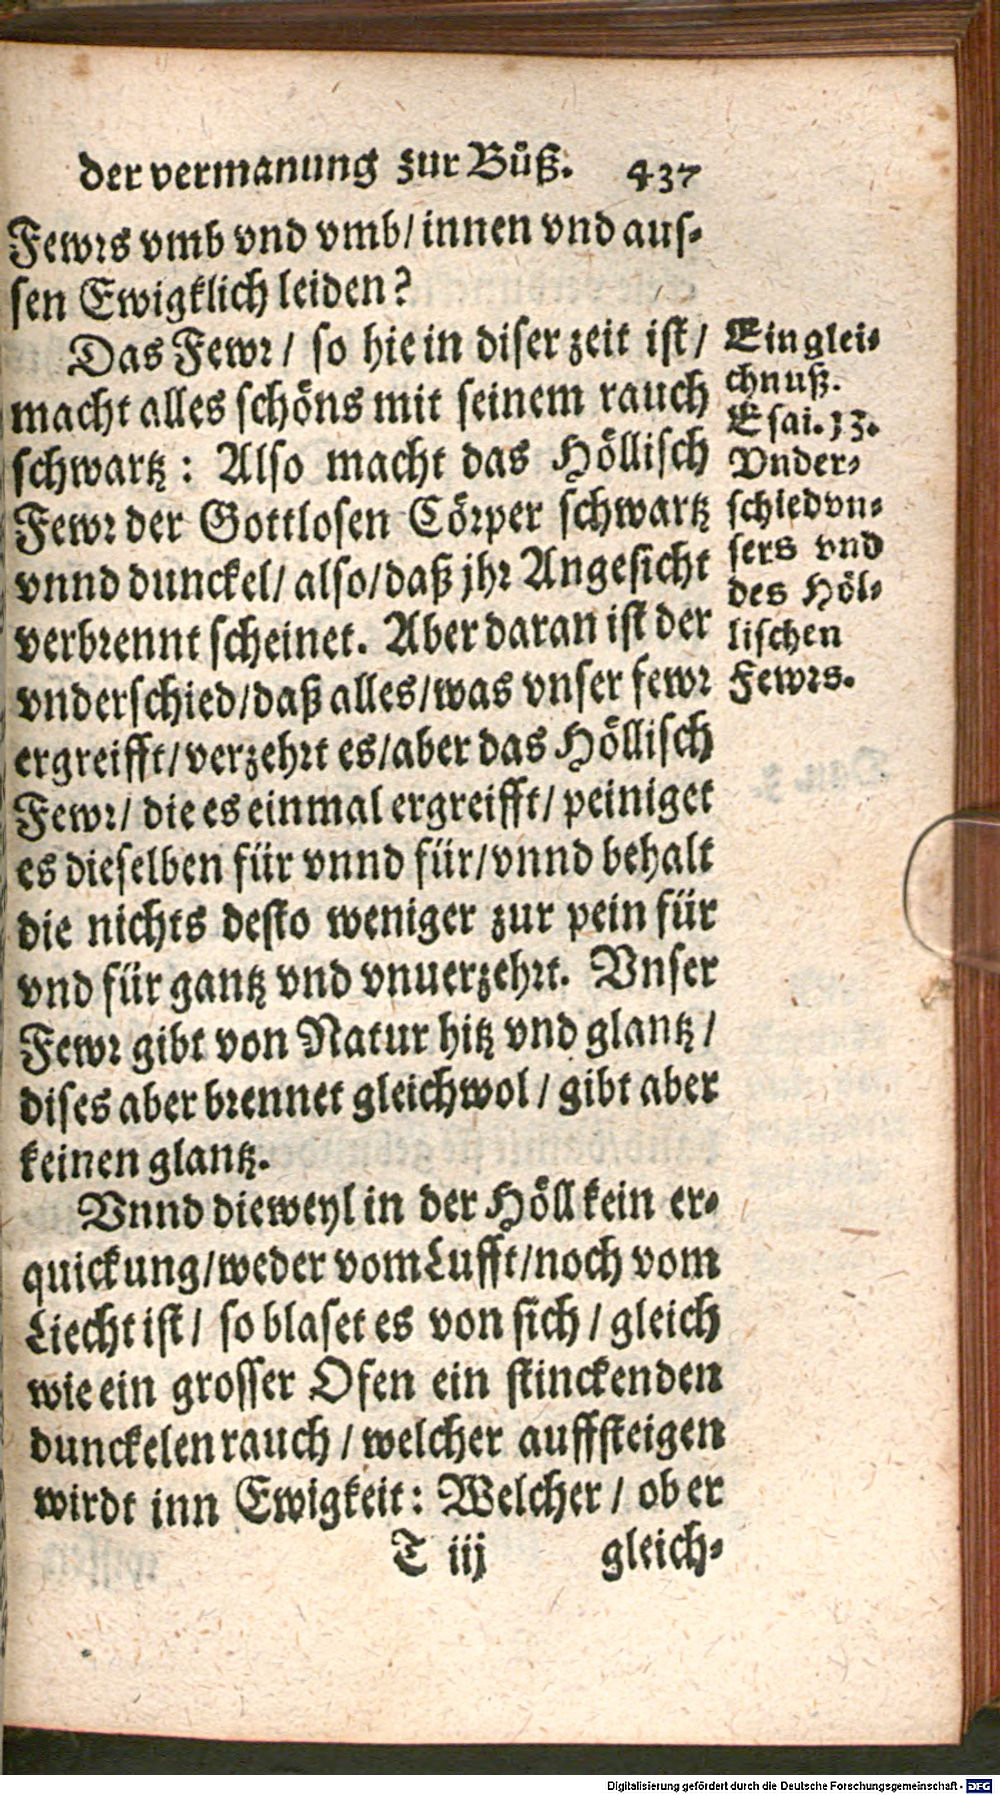 der vermanung zur Büß. 437
Fewrs vmb vnd vmb/ innen vnd aus-
sen Ewigklich leiden?
Das Fewr/ so hie in diser zeit ist/
macht alles schöns mit seinem rauch
schwartz: Also macht das Höllisch
Fewr der Gottlosen Cörper schwartz
vnnd dunckel/ also/ daß jhr Angesicht
verbrennt scheinet. Aber daran ist der
vnderschied/ daß alles/ was vnser fewr
ergreifft/ verzehrt es/ aber das Höllisch
Fewr/ die es einmal ergreifft/ peiniget
es dieselben für vnnd für/ vnnd behalt
die nichts desto weniger zur pein für
vnd für gantz vnd vnuerzehrt. Vnser
Fewr gibt von Natur hitz vnd glantz/
dises aber brennet gleichwol/ gibt aber
keinen glantz.
Vnnd dieweyl in der Höll kein er-
quickung/ weder vom Lufft/ noch vom
Liecht ist/ so blaset es von sich/ gleich
wie ein grosser Ofen ein stinckenden
dunckelen rauch/ welcher auffsteigen
wirdt inn Ewigkeit: Welcher/ ob er
T iij gleich-
Ein glei-
chnuß.
Esai. 13.
Vnder-
schied vn-
sers vnd
des Höl-
lischen
Fewrs.
Digitalisierung gefördert durch die Deutsche Forschungsgemeinschaft - DFG